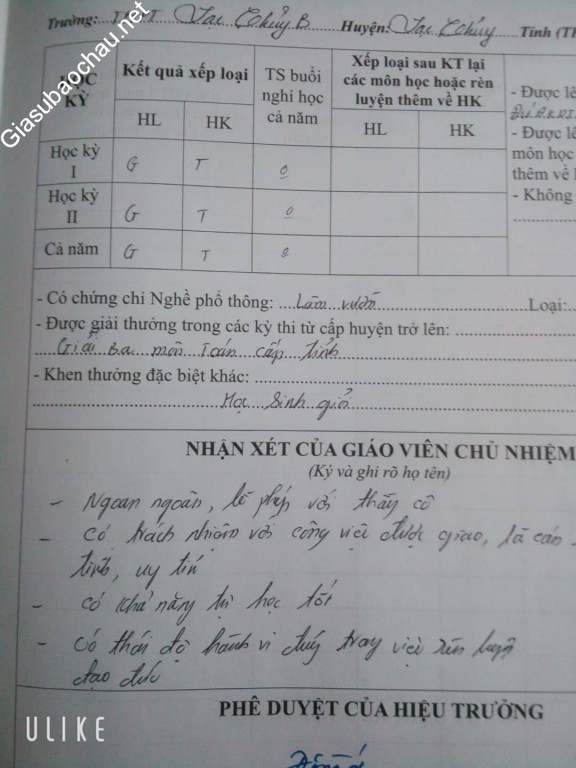 Trường: THPT Lạc Thủy B Huyện: Lạc Thủy Tỉnh (TP
Giasubaochau.net
HỌC KỲ Kết quả xếp loại TS buổi nghỉ học cả năm Xếp loại sau KT lại các môn học hoặc rèn luyện thêm về HK
HL HK HL HK
Học kỳ I G T 0
Học kỳ II G T 0
Cả năm G T 0
- Được lê
- Được lê
môn học
thêm về
- Không
- Có chứng chỉ Nghề phổ thông: Làm vườn Loại:
- Được giải thưởng trong các kỳ thi từ cấp huyện trở lên:
Giải Ba môn Toán cấp tỉnh
- Khen thưởng đặc biệt khác:
Học Sinh giỏi
NHẬN XÉT CỦA GIÁO VIÊN CHỦ NHIỆM
(Ký và ghi rõ họ tên)
- Ngoan ngoãn, lễ phép với thầy cô
- Có trách nhiệm với công việc được giao, là cán
tính, uy tín
- có khả năng tự học tốt
- Có thái độ hành vi đúng trong việc rèn luyện
đạo đức
PHÊ DUYỆT CỦA HIỆU TRƯỞNG
Đồng ý
ULIKE